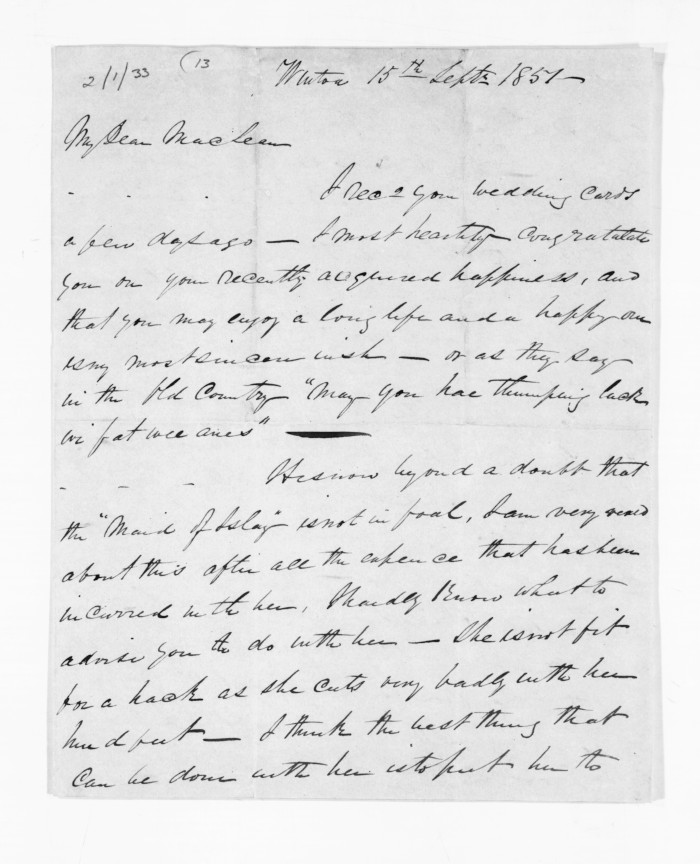 2/1/33 (13
Winton 15th Septr 1851—
My Dear MacLean
I recd your wedding cards
a few days ago — I most heartily congratulate
you on your recently acquired happiness, and
that you may enjoy a long life and a happy one
is my most sincere wish — or as they say
in the Old Country "May you hae thumping luck
wi fat wee anes" —
It is now beyond a doubt that
the "Maid of Islay" is not in foal, I am very vexed
about this after all the expence that has been
incurred with her, I hardly know what to
advise you to do with her — She is not fit
for a hack as she cuts very badly with her
hind feet — I think the best thing that
can be done with her is to put her to